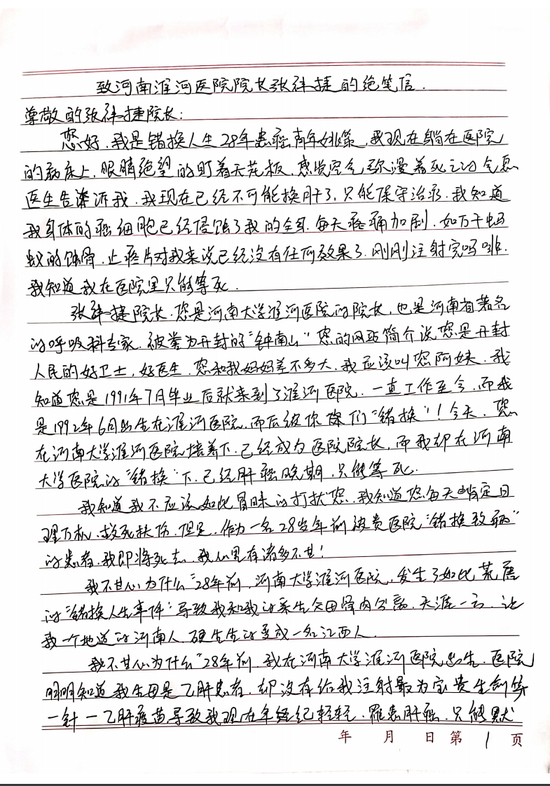 致河南淮河医院院长张祎捷的绝笔信.
尊敬的张祎捷院长:
您好,我是错换人生28年患癌青年姚策,我现在躺在医院
的病床上,眼睛绝望的盯着天花板,感觉空气弥漫着死亡的气息
医生告诉我,我现在已经不可能换肝了,只能保守治疗.我知道
我身体的癌细胞已经侵蚀了我的全身,每天疼痛加剧.如万千蚂
蚁的体骨,止疼片对我来说已经没有任何效果了.刚刚注射完吗啡.
我知道我在医院里只能等死.
张祎捷院长,您是河南大学淮河医院的院长,也是河南省著名
的呼吸科专家,被誉为开封的“钟南山”您的网站简介说您是开封
人民的好卫士,好医生,您和我妈妈差不多大,我应该叫您阿姨.我
知道您是1991年7月毕业后就来到了淮河医院.一直工作至今,而我
是1992年6月出生在淮河医院,而后被你院们“错换”!今天,您
在河南大学淮河医院培养下,已经成为医院院长,而我却在河南
大学医院的“错换”下,已经肝癌晚期,只能等死.
我知道我不应该如此冒昧的打扰您,我知道您每天肯定日
理万机,救死扶伤,但是,作为一名28岁年前被贵医院“错换致癌”
的患者,我即将死去,我心里有诸多不甘!
我不甘心为什么“28年前,河南大学淮河医院,发生了如此荒唐
的“错换人生事件”导致我和我的亲生父母骨肉分离,天涯一方,让
我一个地道的河南人,硬生生的变成一名江西人.
我不甘心为什么“28年前,我在河南大学淮河医院出生,医院
明明知道我生母是乙肝患者,却没有给我注射最为宝贵生命第
一针一乙肝疫苗导致我现在年经纪轻轻,罹患肝癌,只能默
年 月 日第 1 页